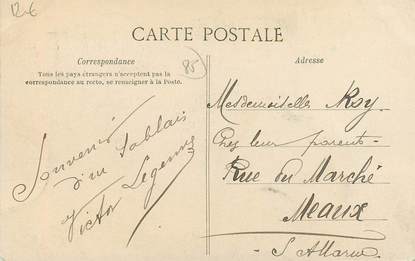 12€
CARTE POSTALE
Correspondance
Tous les pays étrangers n'acceptent pas la
correspondance au recto, se renseigner à la Poste.
85
Souvenir
d'un Sablais
Victor
Adresse
Mesdemoiselles Roy
Chez leur parents
Rue du Marché
Meaux
S. et Marne